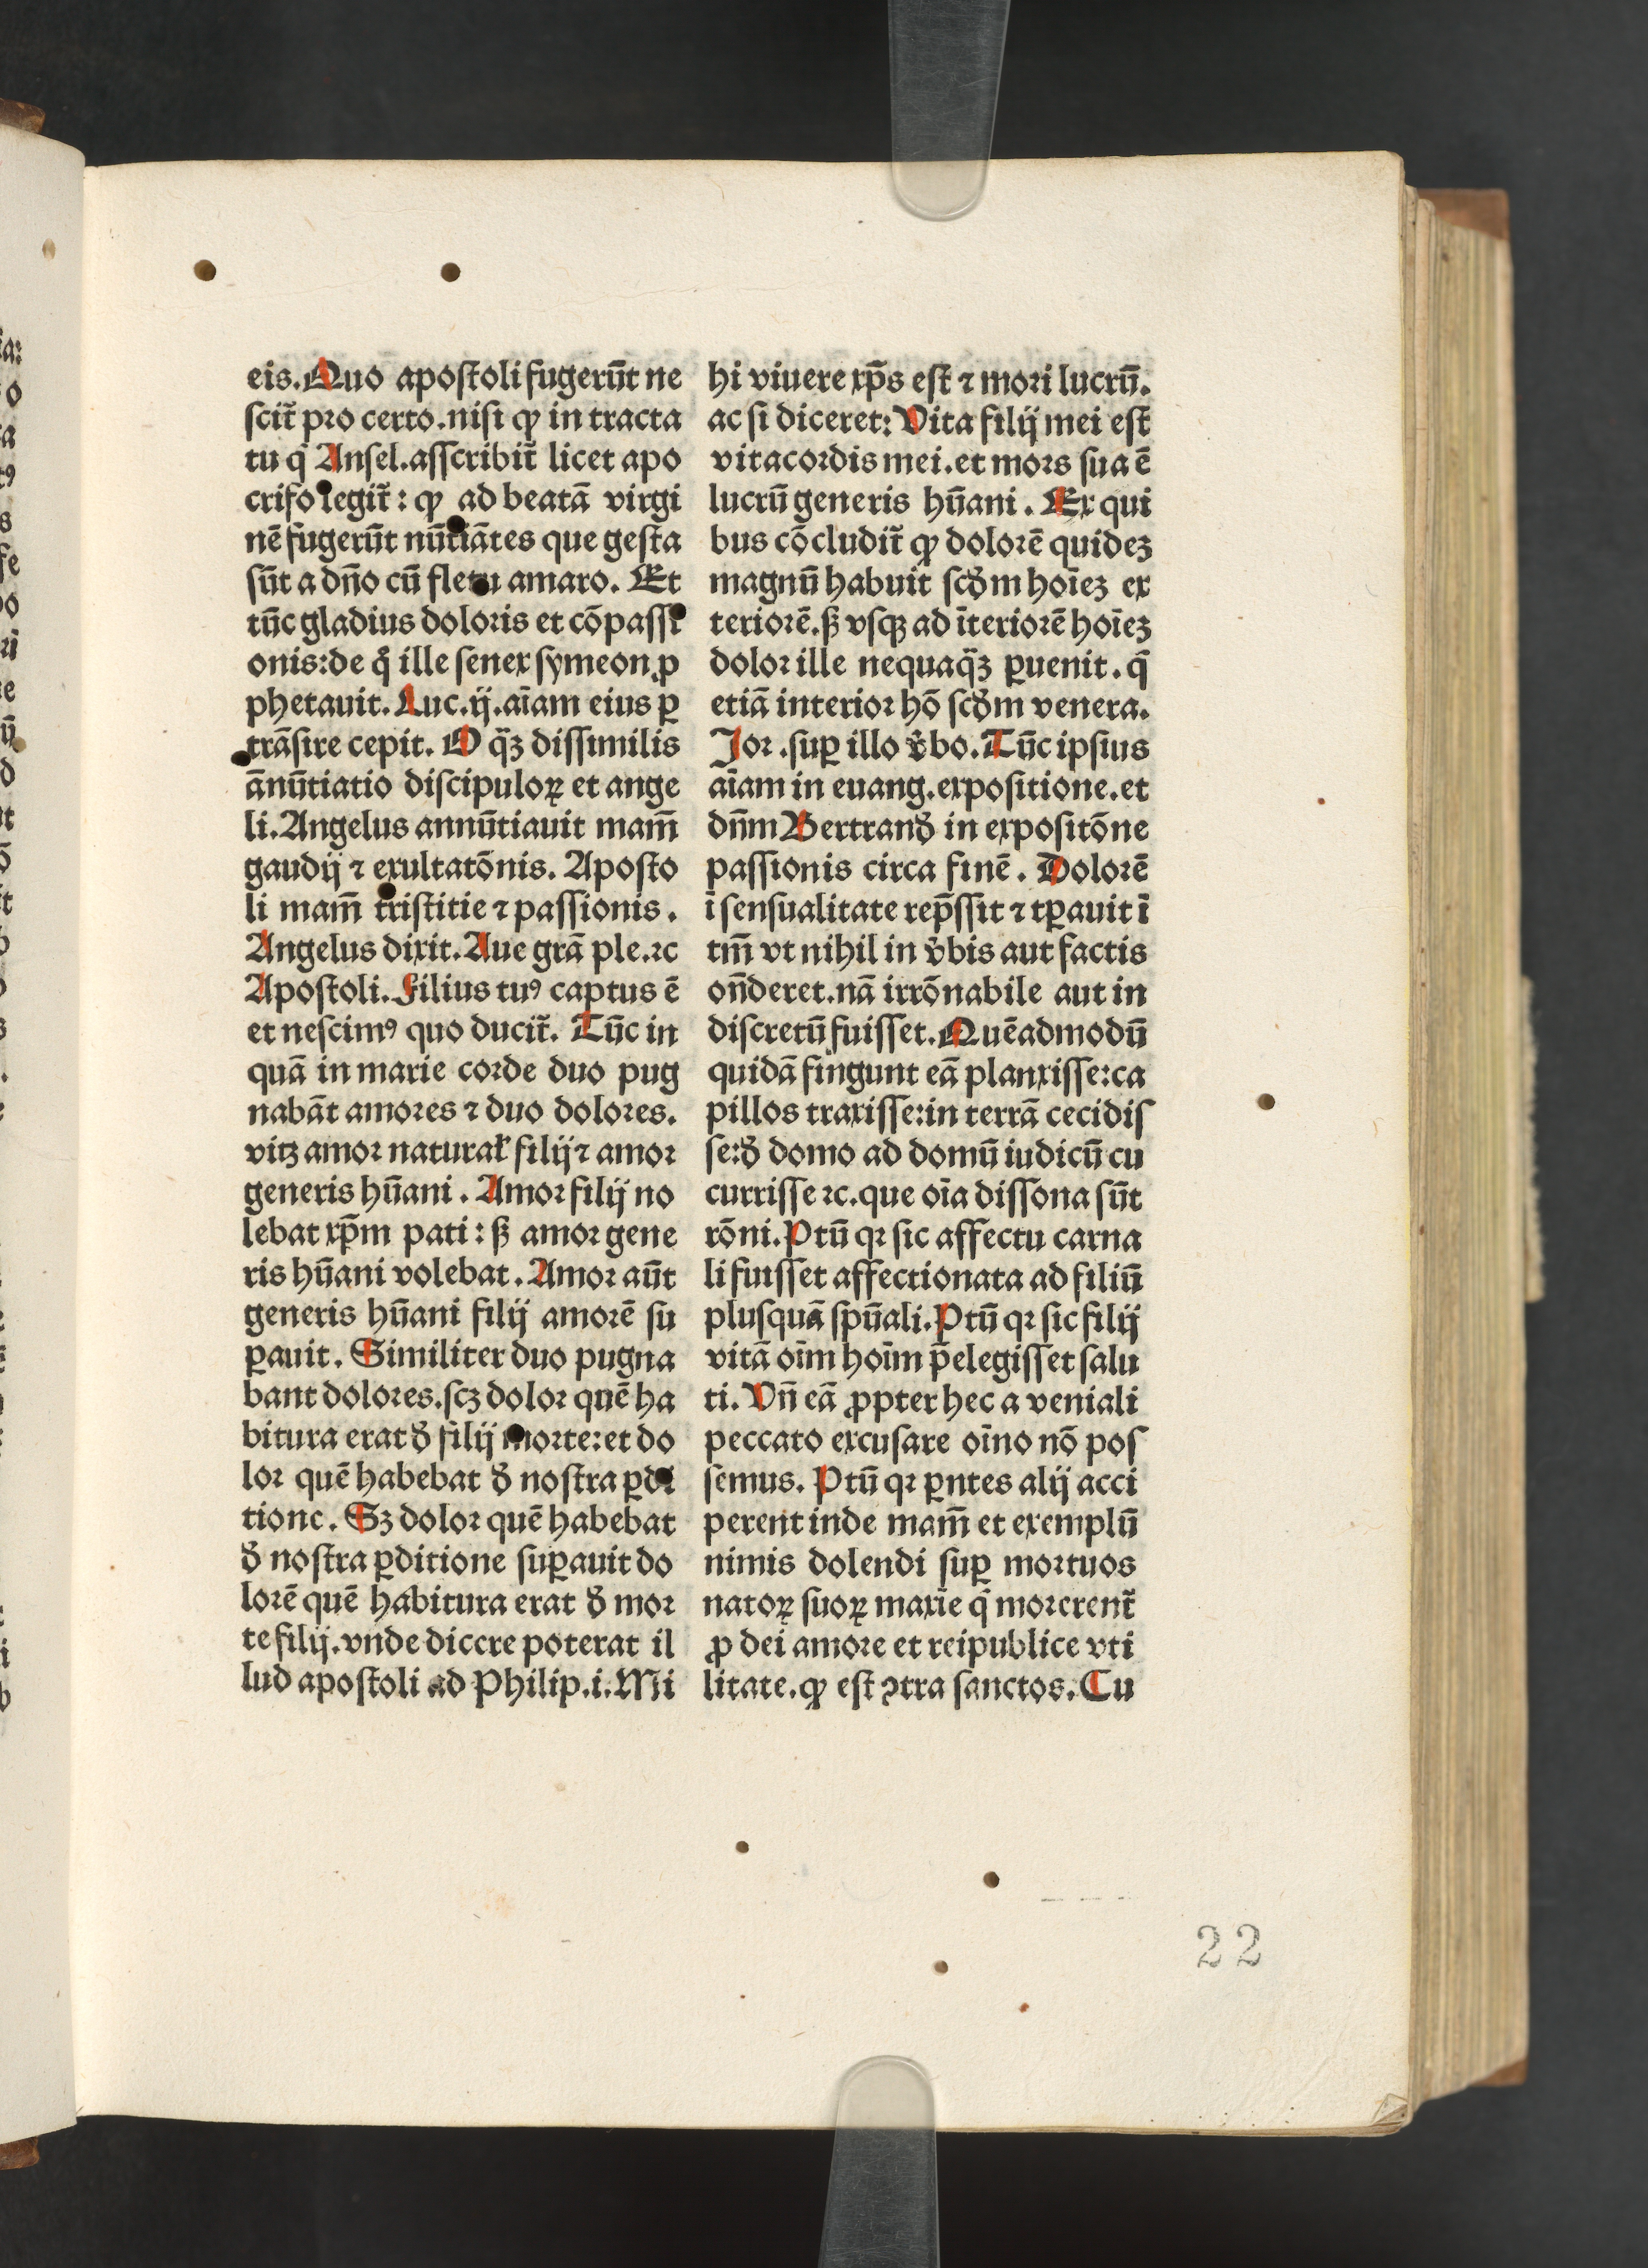 eis. Quo apostoli fugerūt ne
scit̃ pro certo. nisi ꝙ in tracta
tu q̄ Ansel. asscribit̃ licet apo
crifo legit̃ : ꝙ ad beatā virgi
nē fugerūt nūtiātes que gesta
sūt a dño cū fletu amaro. Et
tūc gladius doloris et cōpassi
onis: de q̊ ille senex symeon ꝓ
phetauit. Luc. ij. aīam eius ꝑ
trāsire cepit. O q̄ꝫ dissimilis
ānūtiatio discipuloꝝ et ange
li. Angelus annūtiauit mam̄
gaudij ⁊ exultatōnis. Aposto
li mam̄ tristitie ⁊ passionis.
Angelus dixit. Aue grā ple. ⁊c
Apostoli. Filius tuꝰ captus ē
et nescimꝰ quo ducit̃. Tūc in
quā in marie corde duo pug
nabāt amores ⁊ duo dolores.
vitꝫ amor natural̕ filij ⁊ amor
generis hūani. Amor filij no
lebat xp̄m pati : ß amor gene
ris hūani volebat. Amor aūt
generis hūani filij amorē su
ꝑauit. Similiter duo pugna
bant dolores. scꝫ dolor quē ha
bitura erat ð filij morte: et do
lor quē habebat ð nostra ꝑdi
tione. Sꝫ dolor quē habebat
ð nostra ꝑditione suꝑauit do
lorē quē habitura erat ð mor
te filij. vnde dicere poterat il
lud apostoli ad Philip. i. Mi
hi viuere xp̄s est ⁊ mori lucrū.
ac si diceret: Vita filij mei est
vita cordis mei. et mors sua ē
lucrū generis hūani. Ex qui
bus cōcludit̃ ꝙ dolorē quideꝫ
magnū habuit scðm hoīeꝫ ex
teriorē. ß vsqꝫ ad īteriorē hoīeꝫ
dolor ille nequaq̄ꝫ ꝑuenit. q̄
etiā interior hō scðm venera.
Jor. suꝑ illo v̕bo. Tūc ipsius
aīam in euang. expositione. et
dn̄m Bertranð in expositōne
passionis circa finē. Dolorē
ī sensualitate rep̄ssit ⁊ tꝑauit ī
tm̄ vt nihil in v̕bis aut factis
on̄deret. nā irrōnabile aut in
discretū fuisset. Quēadmodū
quidā fingunt eā planxisse: ca
pillos traxisse: in terrā cecidis
se: ð domo ad domū iudicū cu
currisse ⁊c. que oīa dissona sūt
rōni. Ptū qꝛ sic affectu carna
li fuisset affectionata ad filiū
plusquā spūali. Ptū qꝛ sic filij
vitā oīm hoīm p̄elegisset salu
ti. Vn̄ eā ꝓpter hec a veniali
peccato excusare oīno nō pos
semus. Ptū qꝛ ꝑntes alij acci
perent inde mam̄ et exemplū
nimis dolendi suꝑ mortuos
natoꝝ suoꝝ maxīe q̄ morerent̃
ꝓ dei amore et reipublice vti
litate. ꝙ est ꝯtra sanctos. Cu
22